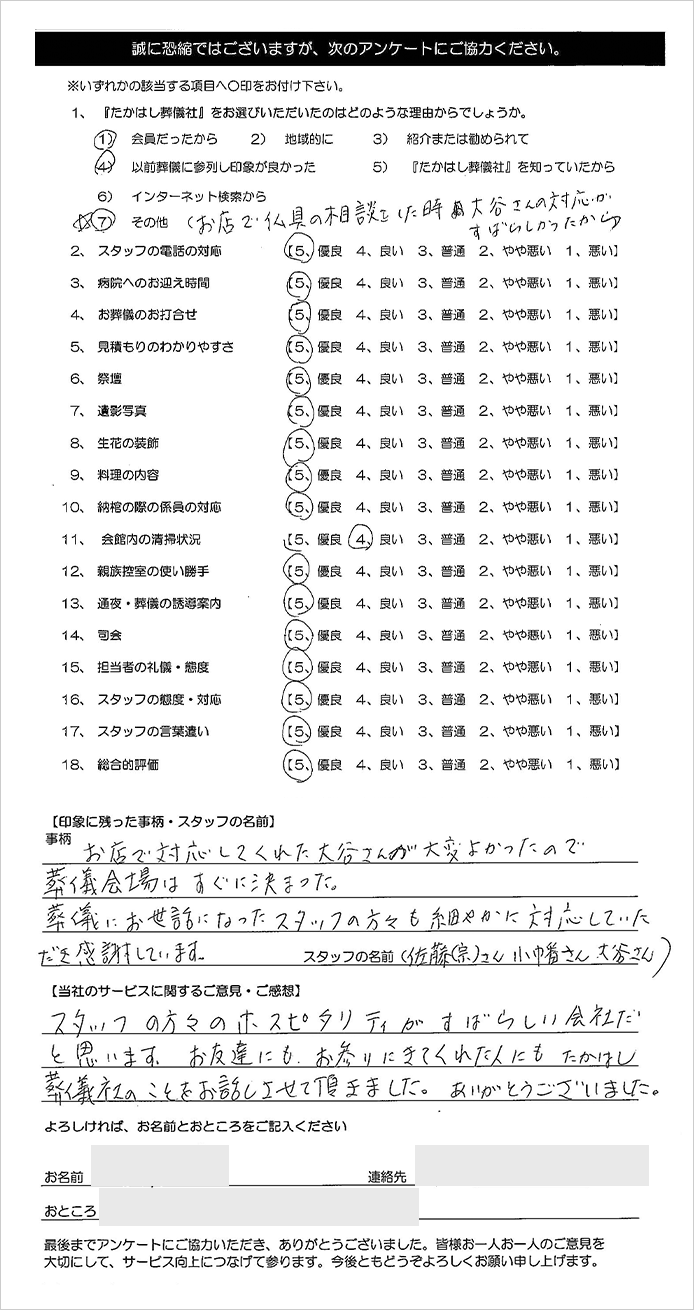 誠に恐縮ではございますが、次のアンケートにご協力ください。
※いずれかの該当する項目へ〇印をお付け下さい。
1、 『たかはし葬儀社』をお選びいただいたのはどのような理由からでしょうか。
1） 会員だったから 2） 地域的に 3） 紹介または勧められて
4） 以前葬儀に参列し印象が良かった 5） 『たかはし葬儀社』を知っていたから
6） インターネット検索から
7） その他 （お店で仏具の相談をした時 大谷さんの対応が
すばらしかったから）
2、 スタッフの電話の対応 【5、優良 4、良い 3、普通 2、やや悪い 1、悪い】
3、 病院へのお迎え時間 【5、優良 4、良い 3、普通 2、やや悪い 1、悪い】
4、 お葬儀のお打合せ 【5、優良 4、良い 3、普通 2、やや悪い 1、悪い】
5、 見積もりのわかりやすさ 【5、優良 4、良い 3、普通 2、やや悪い 1、悪い】
6、 祭壇 【5、優良 4、良い 3、普通 2、やや悪い 1、悪い】
7、 遺影写真 【5、優良 4、良い 3、普通 2、やや悪い 1、悪い】
8、 生花の装飾 【5、優良 4、良い 3、普通 2、やや悪い 1、悪い】
9、 料理の内容 【5、優良 4、良い 3、普通 2、やや悪い 1、悪い】
10、 納棺の際の係員の対応 【5、優良 4、良い 3、普通 2、やや悪い 1、悪い】
11、 会館内の清掃状況 【5、優良 4、良い 3、普通 2、やや悪い 1、悪い】
12、 親族控室の使い勝手 【5、優良 4、良い 3、普通 2、やや悪い 1、悪い】
13、 通夜・葬儀の誘導案内 【5、優良 4、良い 3、普通 2、やや悪い 1、悪い】
14、 司会 【5、優良 4、良い 3、普通 2、やや悪い 1、悪い】
15、 担当者の礼儀・態度 【5、優良 4、良い 3、普通 2、やや悪い 1、悪い】
16、 スタッフの態度・対応 【5、優良 4、良い 3、普通 2、やや悪い 1、悪い】
17、 スタッフの言葉遣い 【5、優良 4、良い 3、普通 2、やや悪い 1、悪い】
18、 総合的評価 【5、優良 4、良い 3、普通 2、やや悪い 1、悪い】
【印象に残った事柄・スタッフの名前】
事柄 お店で対応してくれた大谷さんが大変よかったので
葬儀会場はすぐに決まった。
葬儀にお世話になったスタッフの方々も細やかに対応していた
だき感謝しています。 スタッフの名前（佐藤(宗)さん 小山省さん 大谷さん）
【当社のサービスに関するご意見・ご感想】
スタッフの方々のホスピタリティがすばらしい会社だ
と思います。お友達にも、お参りにきてくれた人にもたかはし
葬儀社のことをお話しさせて頂きました。ありがとうございました。
よろしければ、お名前とおところをご記入ください
お名前 連絡先
おところ
最後までアンケートにご協力いただき、ありがとうございました。皆様お一人お一人のご意見を
大切にして、サービス向上につなげて参ります。今後ともどうぞよろしくお願い申し上げます。